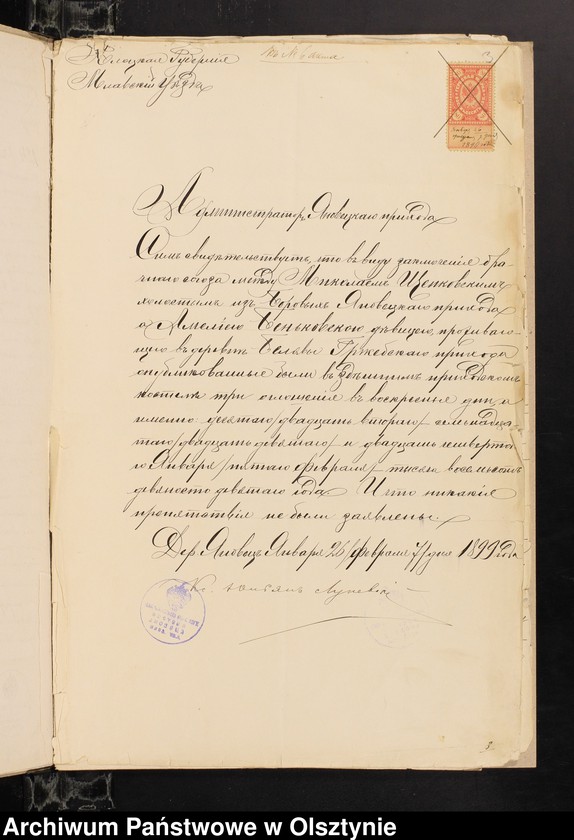 Плоцкая Губернія
Млавскій Уѣздъ
Администраторъ Яновецкаго прихода
Симъ свидѣтельствуетъ, что въ виду заключенія бра-
чнаго союза между Миколаемъ Щепковскимъ
холостымъ изъ Яновецкаго прихода
а Амеліею Беньковскою дѣвицею, проживаю-
щую въ деревнѣ Гржебскаго прихода
опубликованные были въ здѣшнимъ приходскомъ
костелѣ три оглашенія въ воскресные дни, а
именно: десятаго/двадцать втораго/ семнадца-
таго/двадцать девятаго/ и двадцать четверта-
го Января/пятаго февраля/ тысяча восемьсотъ
девяносто девятаго года. И что никакія
препятствія не были заявлены.
Дер. Яновецъ Января 26/февраля 7/дня 1899 года
Кс.
3
Archiwum Państwowe w Olsztynie